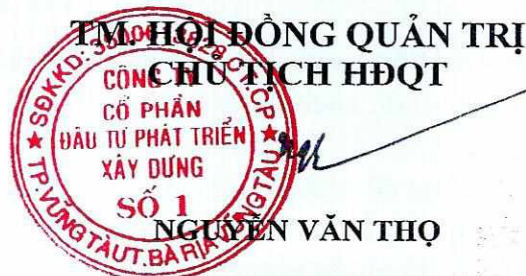 TM. HỘI ĐỒNG QUẢN TRỊ
CHỦ TỊCH HĐQT
CÔNG TY
CỔ PHẦN
ĐẦU TƯ PHÁT TRIỂN
XÂY DỰNG
SỐ 1
TP.VŨNG TÀU T.BÀ RỊA VŨNG TÀU
NGUYỄN VĂN THỌ